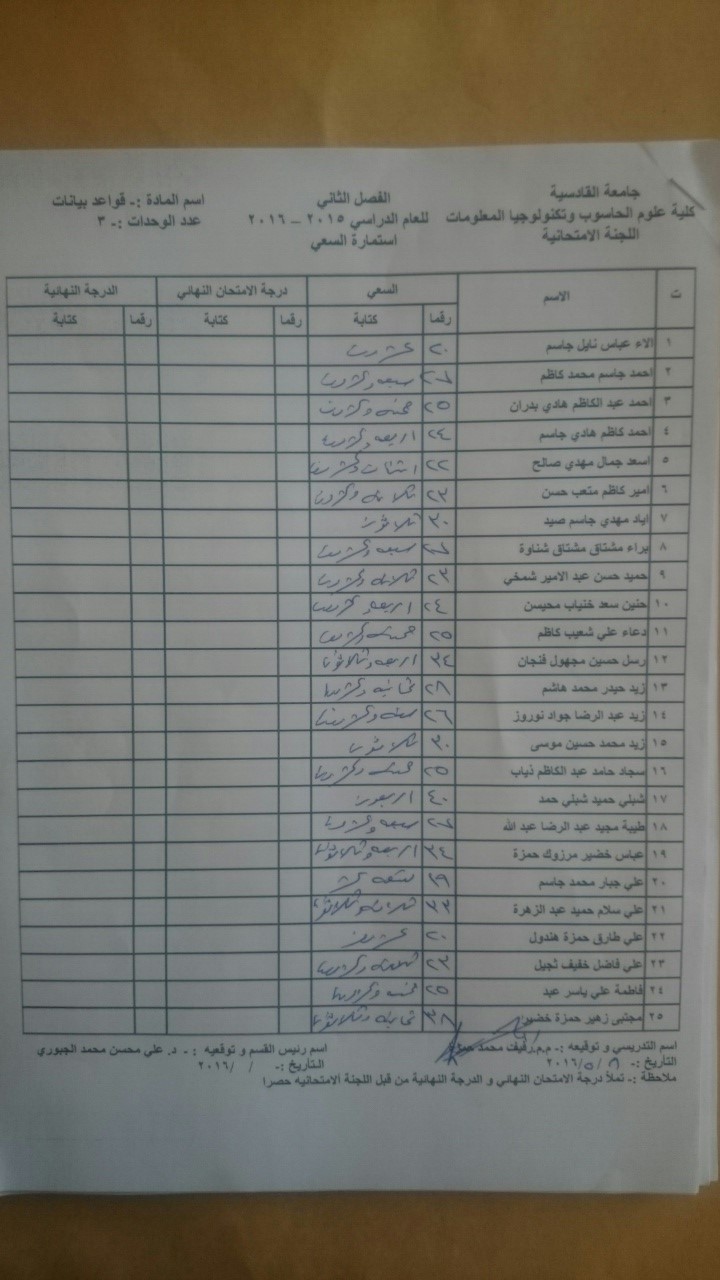 جامعة القادسية
كلية علوم الحاسوب وتكنولوجيا المعلومات
اللجنة الامتحانية
الفصل الثاني
للعام الدراسي ٢٠١٥ – ٢٠١٦
استمارة السعي
اسم المادة :ـ قواعد بيانات
عدد الوحدات :ـ ٣
ت الاسم السعي درجة الامتحان النهائي الدرجة النهائية
رقما كتابة رقما كتابة رقما كتابة
١ الاء عباس نايل جاسم ٢٠ عشرون
٢ احمد جاسم محمد كاظم ٢٧ سبعه وعشرون
٣ احمد عبد الكاظم هادي بدران ٢٥ خمسه وعشرون
٤ احمد كاظم هادي جاسم ٢٤ اربعه وعشرون
٥ اسعد جمال مهدي صالح ٢٢ اثنان وعشرون
٦ امير كاظم متعب حسن ٢٣ ثلاثه وعشرون
٧ اياد مهدي جاسم صيد ٣٠ ثلاثون
٨ براء مشتاق مشتاق شناوة ٢٧ سبعه وعشرون
٩ حميد حسن عبد الامير شمخي ٢٣ ثلاثه وعشرون
١٠ حنين سعد خنياب محيسن ٢٤ اربعه وعشرون
١١ دعاء علي شعيب كاظم ٢٥ خمسه وعشرون
١٢ رسل حسين مجهول فنجان ٣٤ اربعه وثلاثون
١٣ زيد حيدر محمد هاشم ٢٨ ثمانيه وعشرون
١٤ زيد عبد الرضا جواد نوروز ٢٦ سته وعشرون
١٥ زيد محمد حسين موسى ٣٠ ثلاثون
١٦ سجاد حامد عبد الكاظم ذياب ٢٥ خمسه وعشرون
١٧ شبلي حميد شبلي حمد ٤٠ اربعون
١٨ طيبة مجيد عبد الرضا عبد الله ٢٧ سبعه وعشرون
١٩ عباس خضير مرزوك حمزة ٣٤ اربعه وثلاثون
٢٠ علي جبار محمد جاسم ١٩ تسعه عشر
٢١ علي سلام حميد عبد الزهرة ٣٣ ثلاثه وثلاثون
٢٢ علي طارق حمزة هندول ٢٠ عشرون
٢٣ علي فاضل خفيف ثجيل ٢٣ ثلاثه وعشرون
٢٤ فاطمة علي ياسر عبد ٢٥ خمسه وعشرون
٢٥ مجتبى زهير حمزة خضير ٣٨ ثمانيه وثلاثون
اسم التدريسي و توقيعه :ـ م.م.رفيف محمد حمزة
التاريخ :ـ ٨ / ٥ /٢٠١٦
اسم رئيس القسم و توقيعه :ـ د. علي محسن محمد الجبوري
التاريخ :ـ / /٢٠١٦
ملاحظة :ـ تملأ درجة الامتحان النهائي و الدرجة النهائية من قبل اللجنة الامتحانيه حصرا